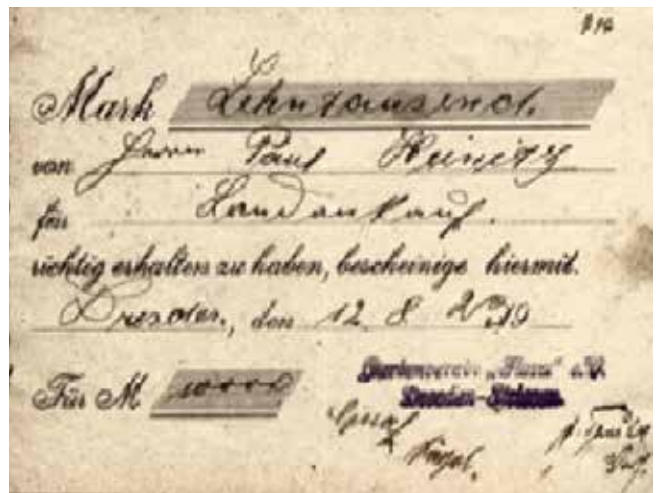 Mark Zehntausend.
von Herrn Paul Heinitz
für Landankauf.
richtig erhalten zu haben, bescheinige hiermit.
Dresden, den 12. 8. 19
Für M 10000
Gartenverein „Flora“ e.V.
Dresden-
Vogel.